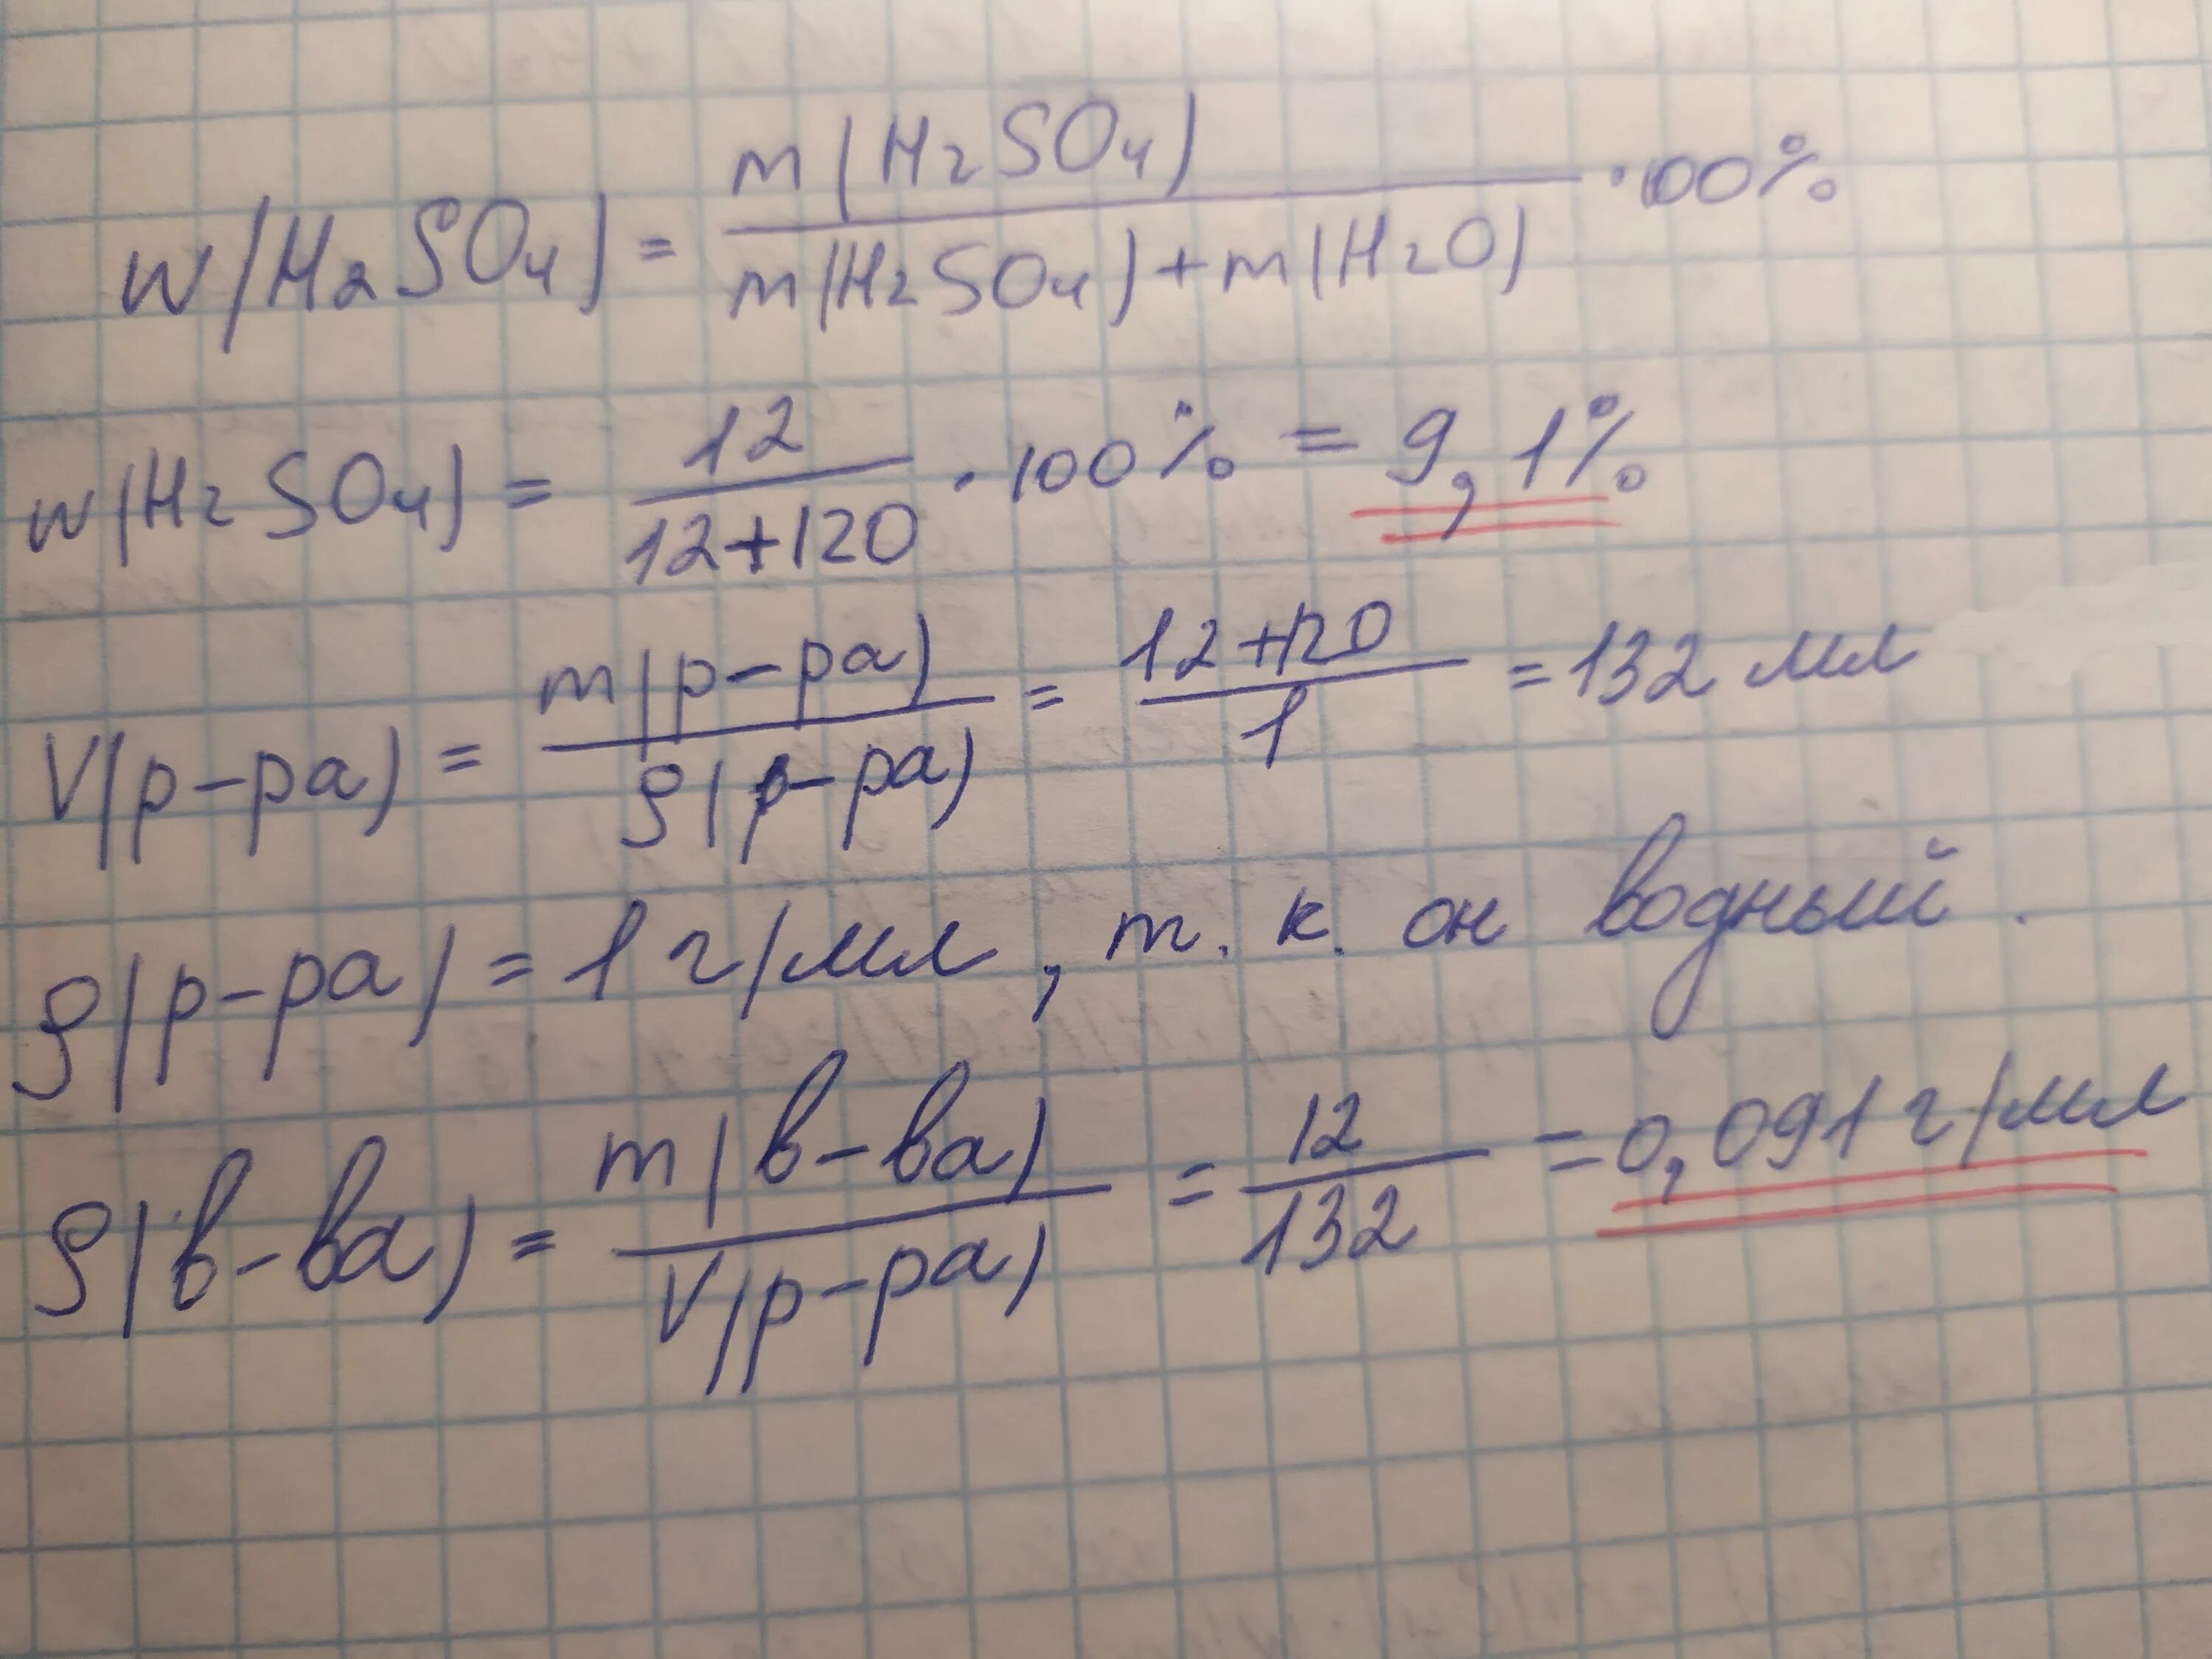 w(H₂SO₄) = m(H₂SO₄) / m(H₂SO₄)+m(H₂O) · 100%
w(H₂SO₄) = 12 / 12+120 · 100% = 9,1%
V(р-ра) = m(р-ра) / ρ(р-ра) = 12+120 / 1 = 132 мл
ρ(р-ра) = 1 г/мл, т.к. он водный.
ρ(в-ва) = m(в-ва) / V(р-ра) = 12 / 132 = 0,091 г/мл